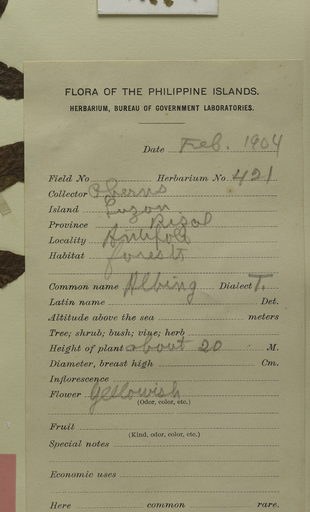 FLORA OF THE PHILIPPINE ISLANDS.
HERBARIUM, BUREAU OF GOVERNMENT LABORATORIES.
Date Feb. 1904
Field No. Herbarium No. 421
Collector Aherns
Island Luzon
Province Rizal
Locality Antipolo
Habitat forests
Common name Albing Dialect T.
Latin name Det.
Altitude above the sea meters
Tree; shrub; bush; vine; herb
Height of plant about 20 M.
Diameter, breast high Cm.
Inflorescence
Flower yellowish
(Odor, color, etc.)
Fruit
(Kind, odor, color, etc.)
Special notes
Economic uses
Here common rare.